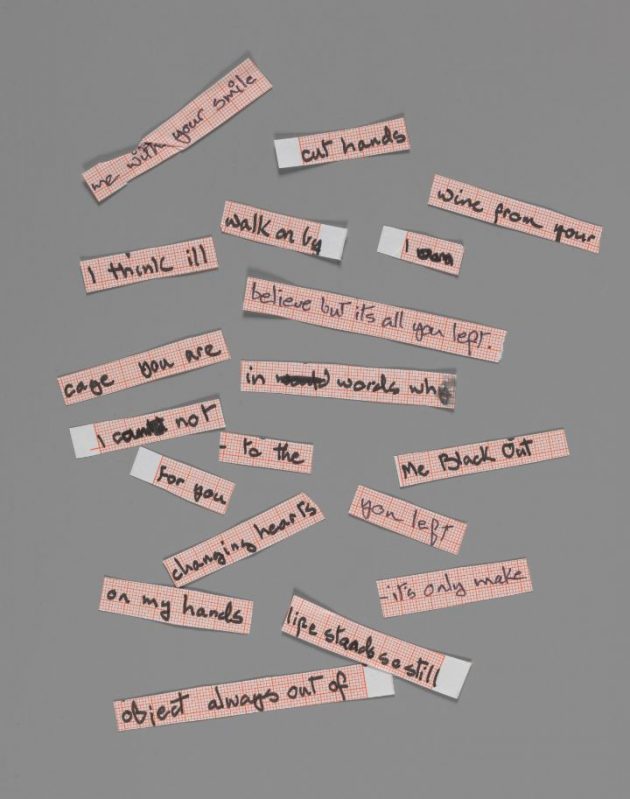 me with your smile
cut hands
wine from your
walk on by
I own
I think ill
believe but its all you left.
cage you are
in words who
I not
to the
Me Black Out
For you
you left
changing hearts
on my hands
-it's only make
life stands so still
object always out of